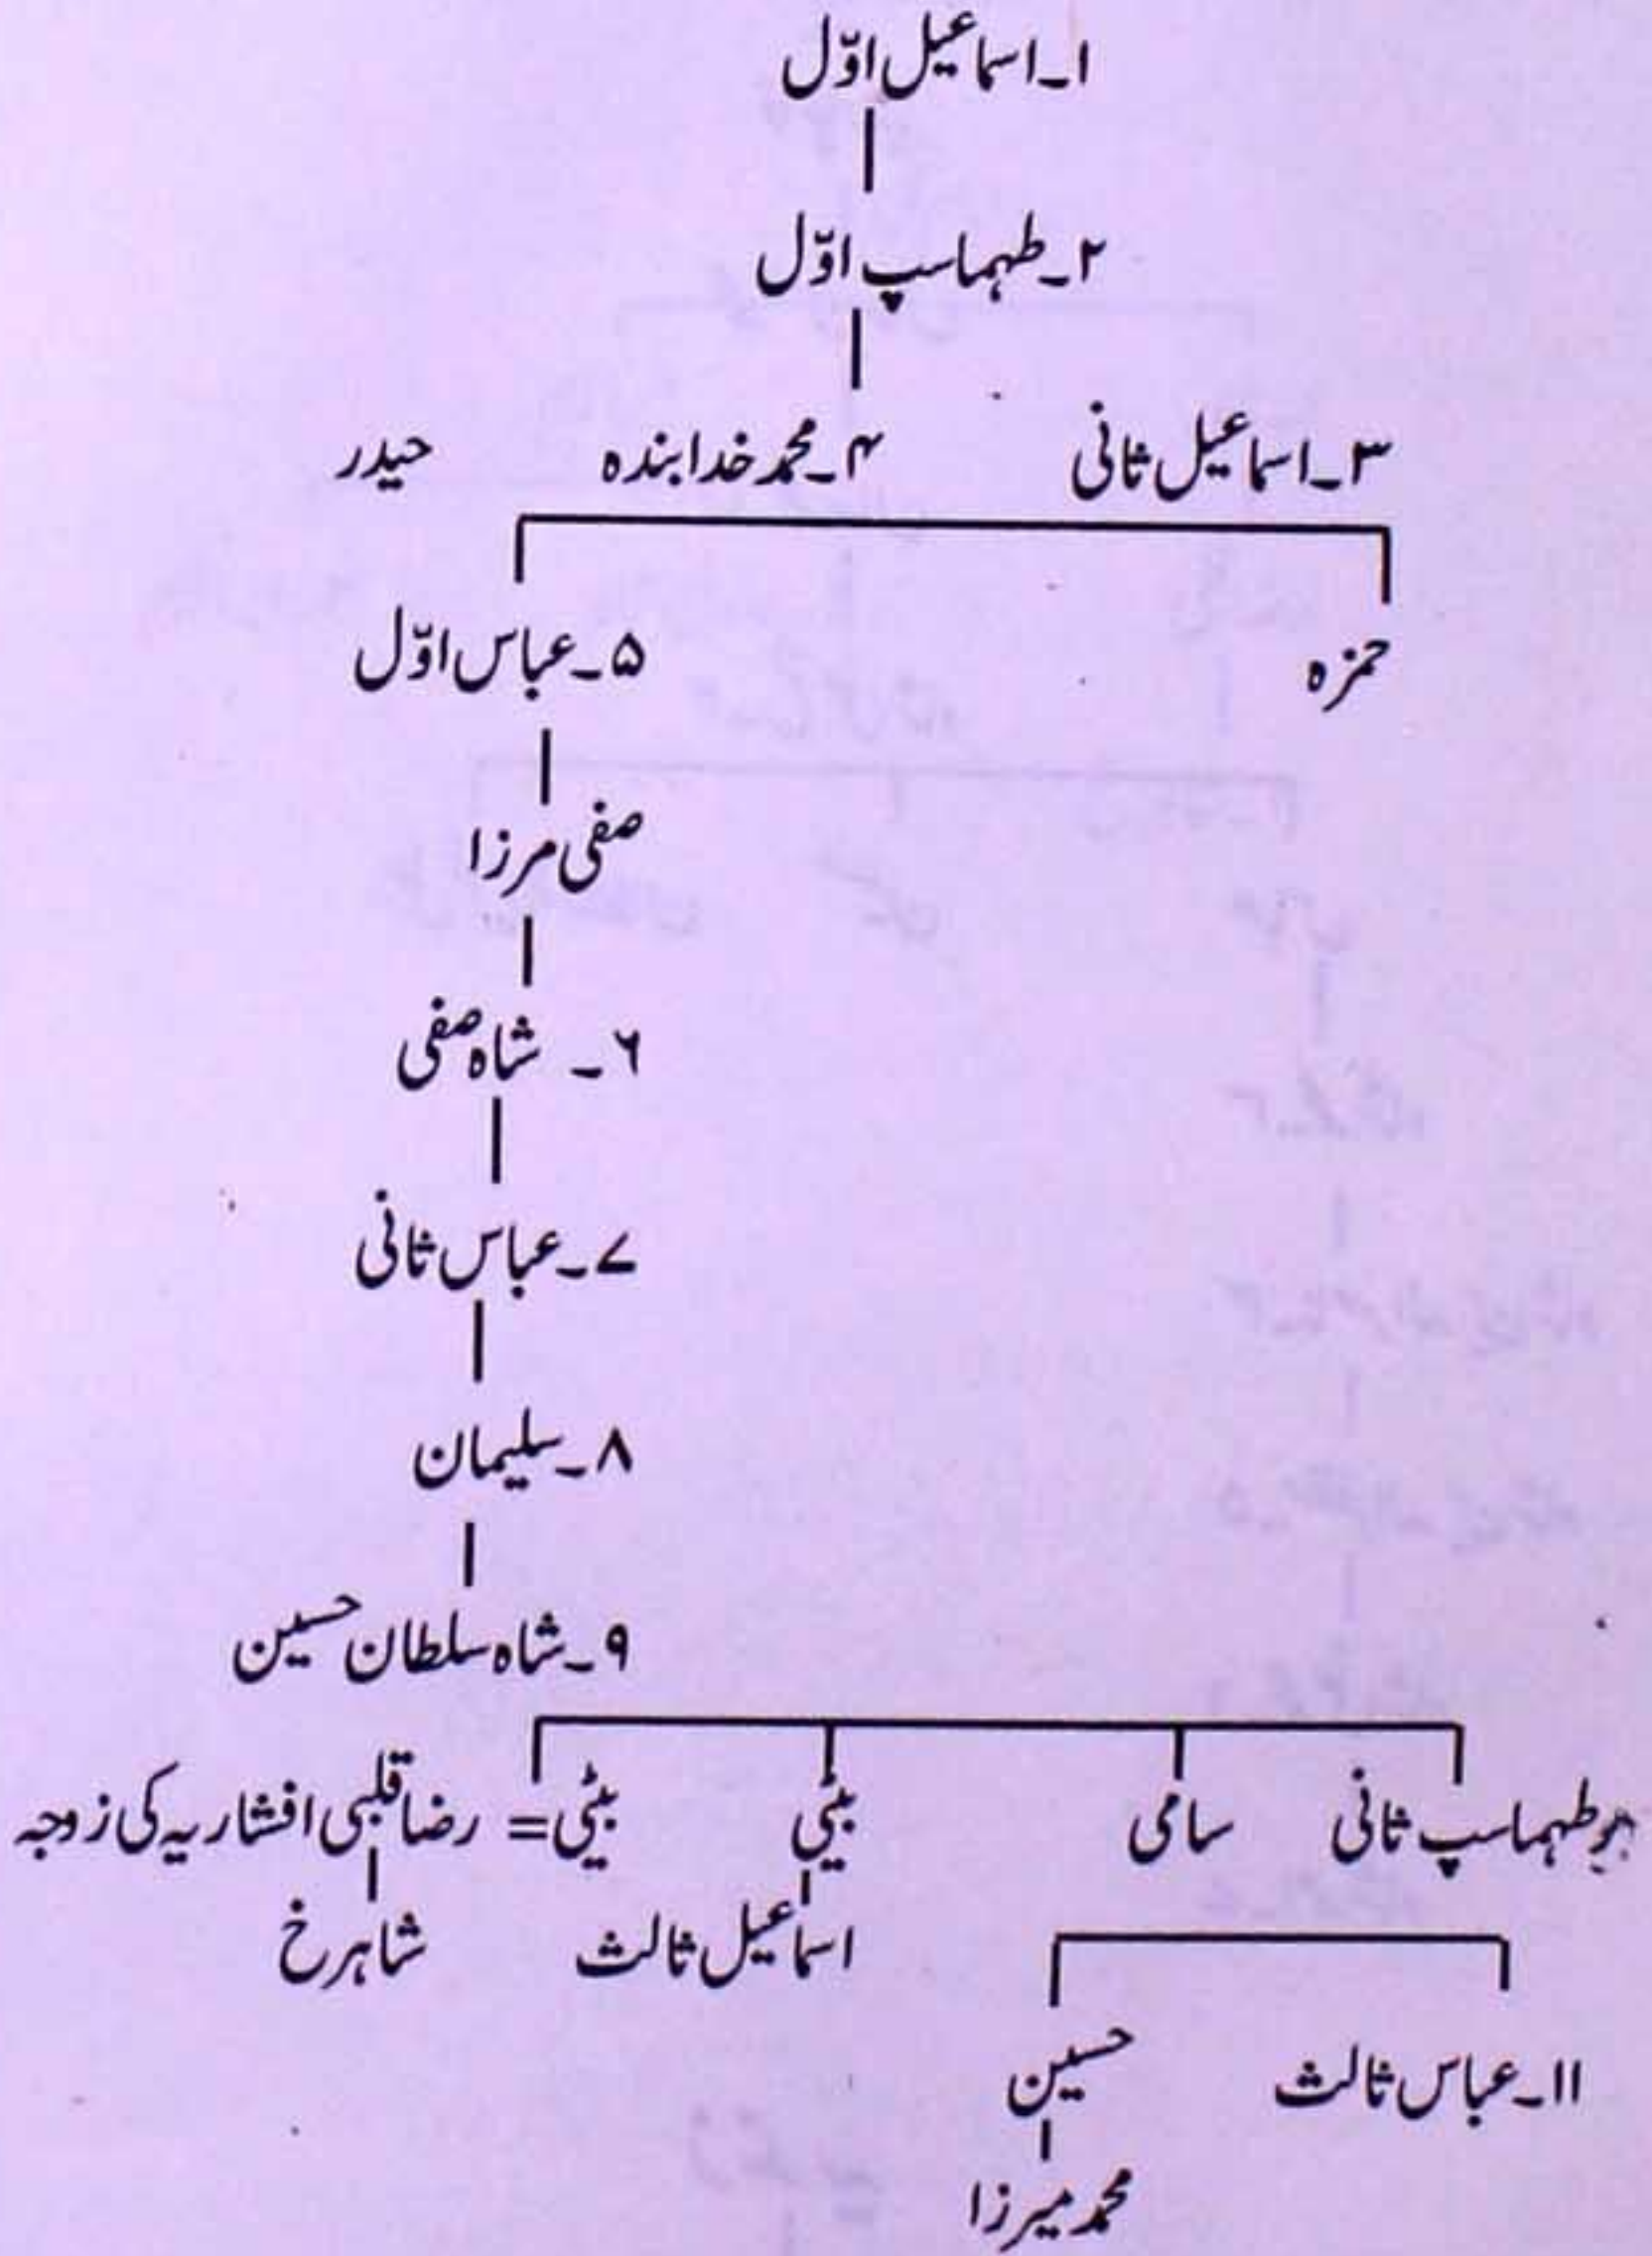 ۱۔اسماعیل اوّل
۲۔طہماسپ اوّل
۳۔اسماعیل ثانی ۴۔محمد خدابندہ حیدر
حمزہ ۵۔عباس اوّل
صفی مرزا
۶۔ شاہ صفی
۷۔عباس ثانی
۸۔سلیمان
۹۔شاہ سلطان حسین
طہماسپ ثانی سامی بیٹی بیٹی = رضا قلبی افشاریہ کی زوجہ
اسماعیل ثالث شاہرخ
۱۱۔عباس ثالث حسین
محمد میرزا